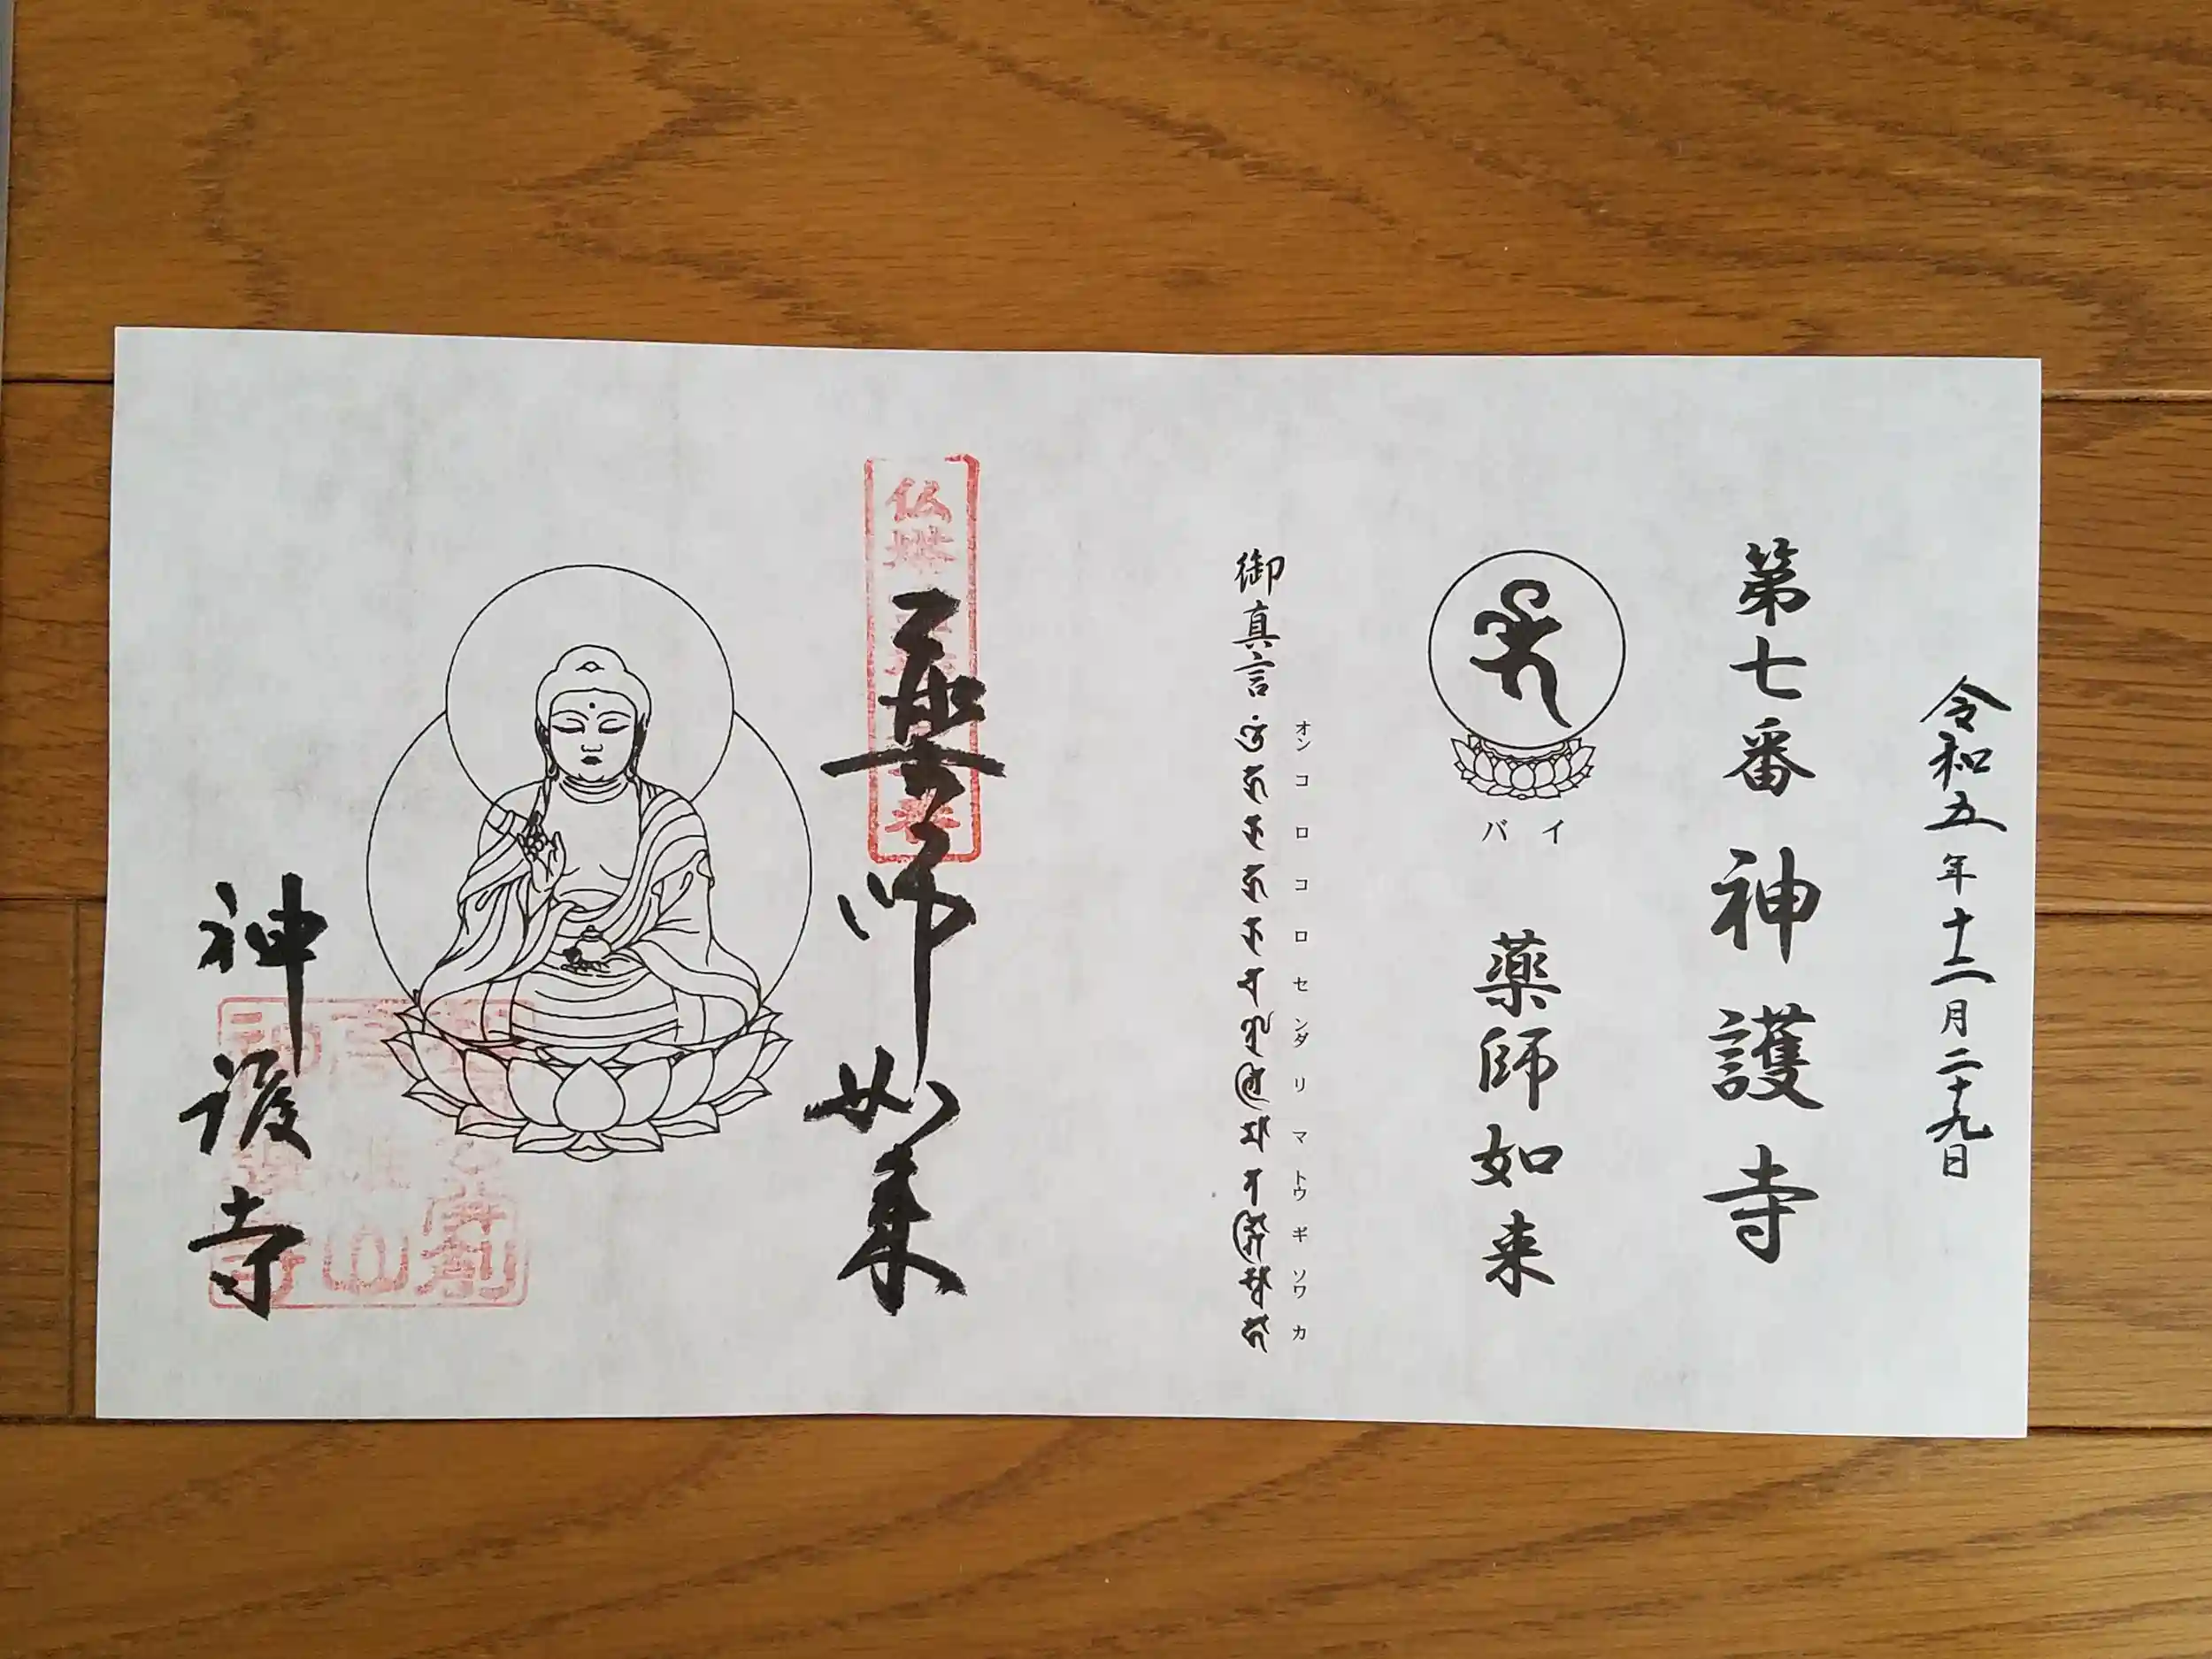 令和五年十二月二十九日
第七番 神護寺
バイ
薬師如来
オン コロ コロ センダリ マトウギ ソワカ
御真言
薬師如来
神護寺